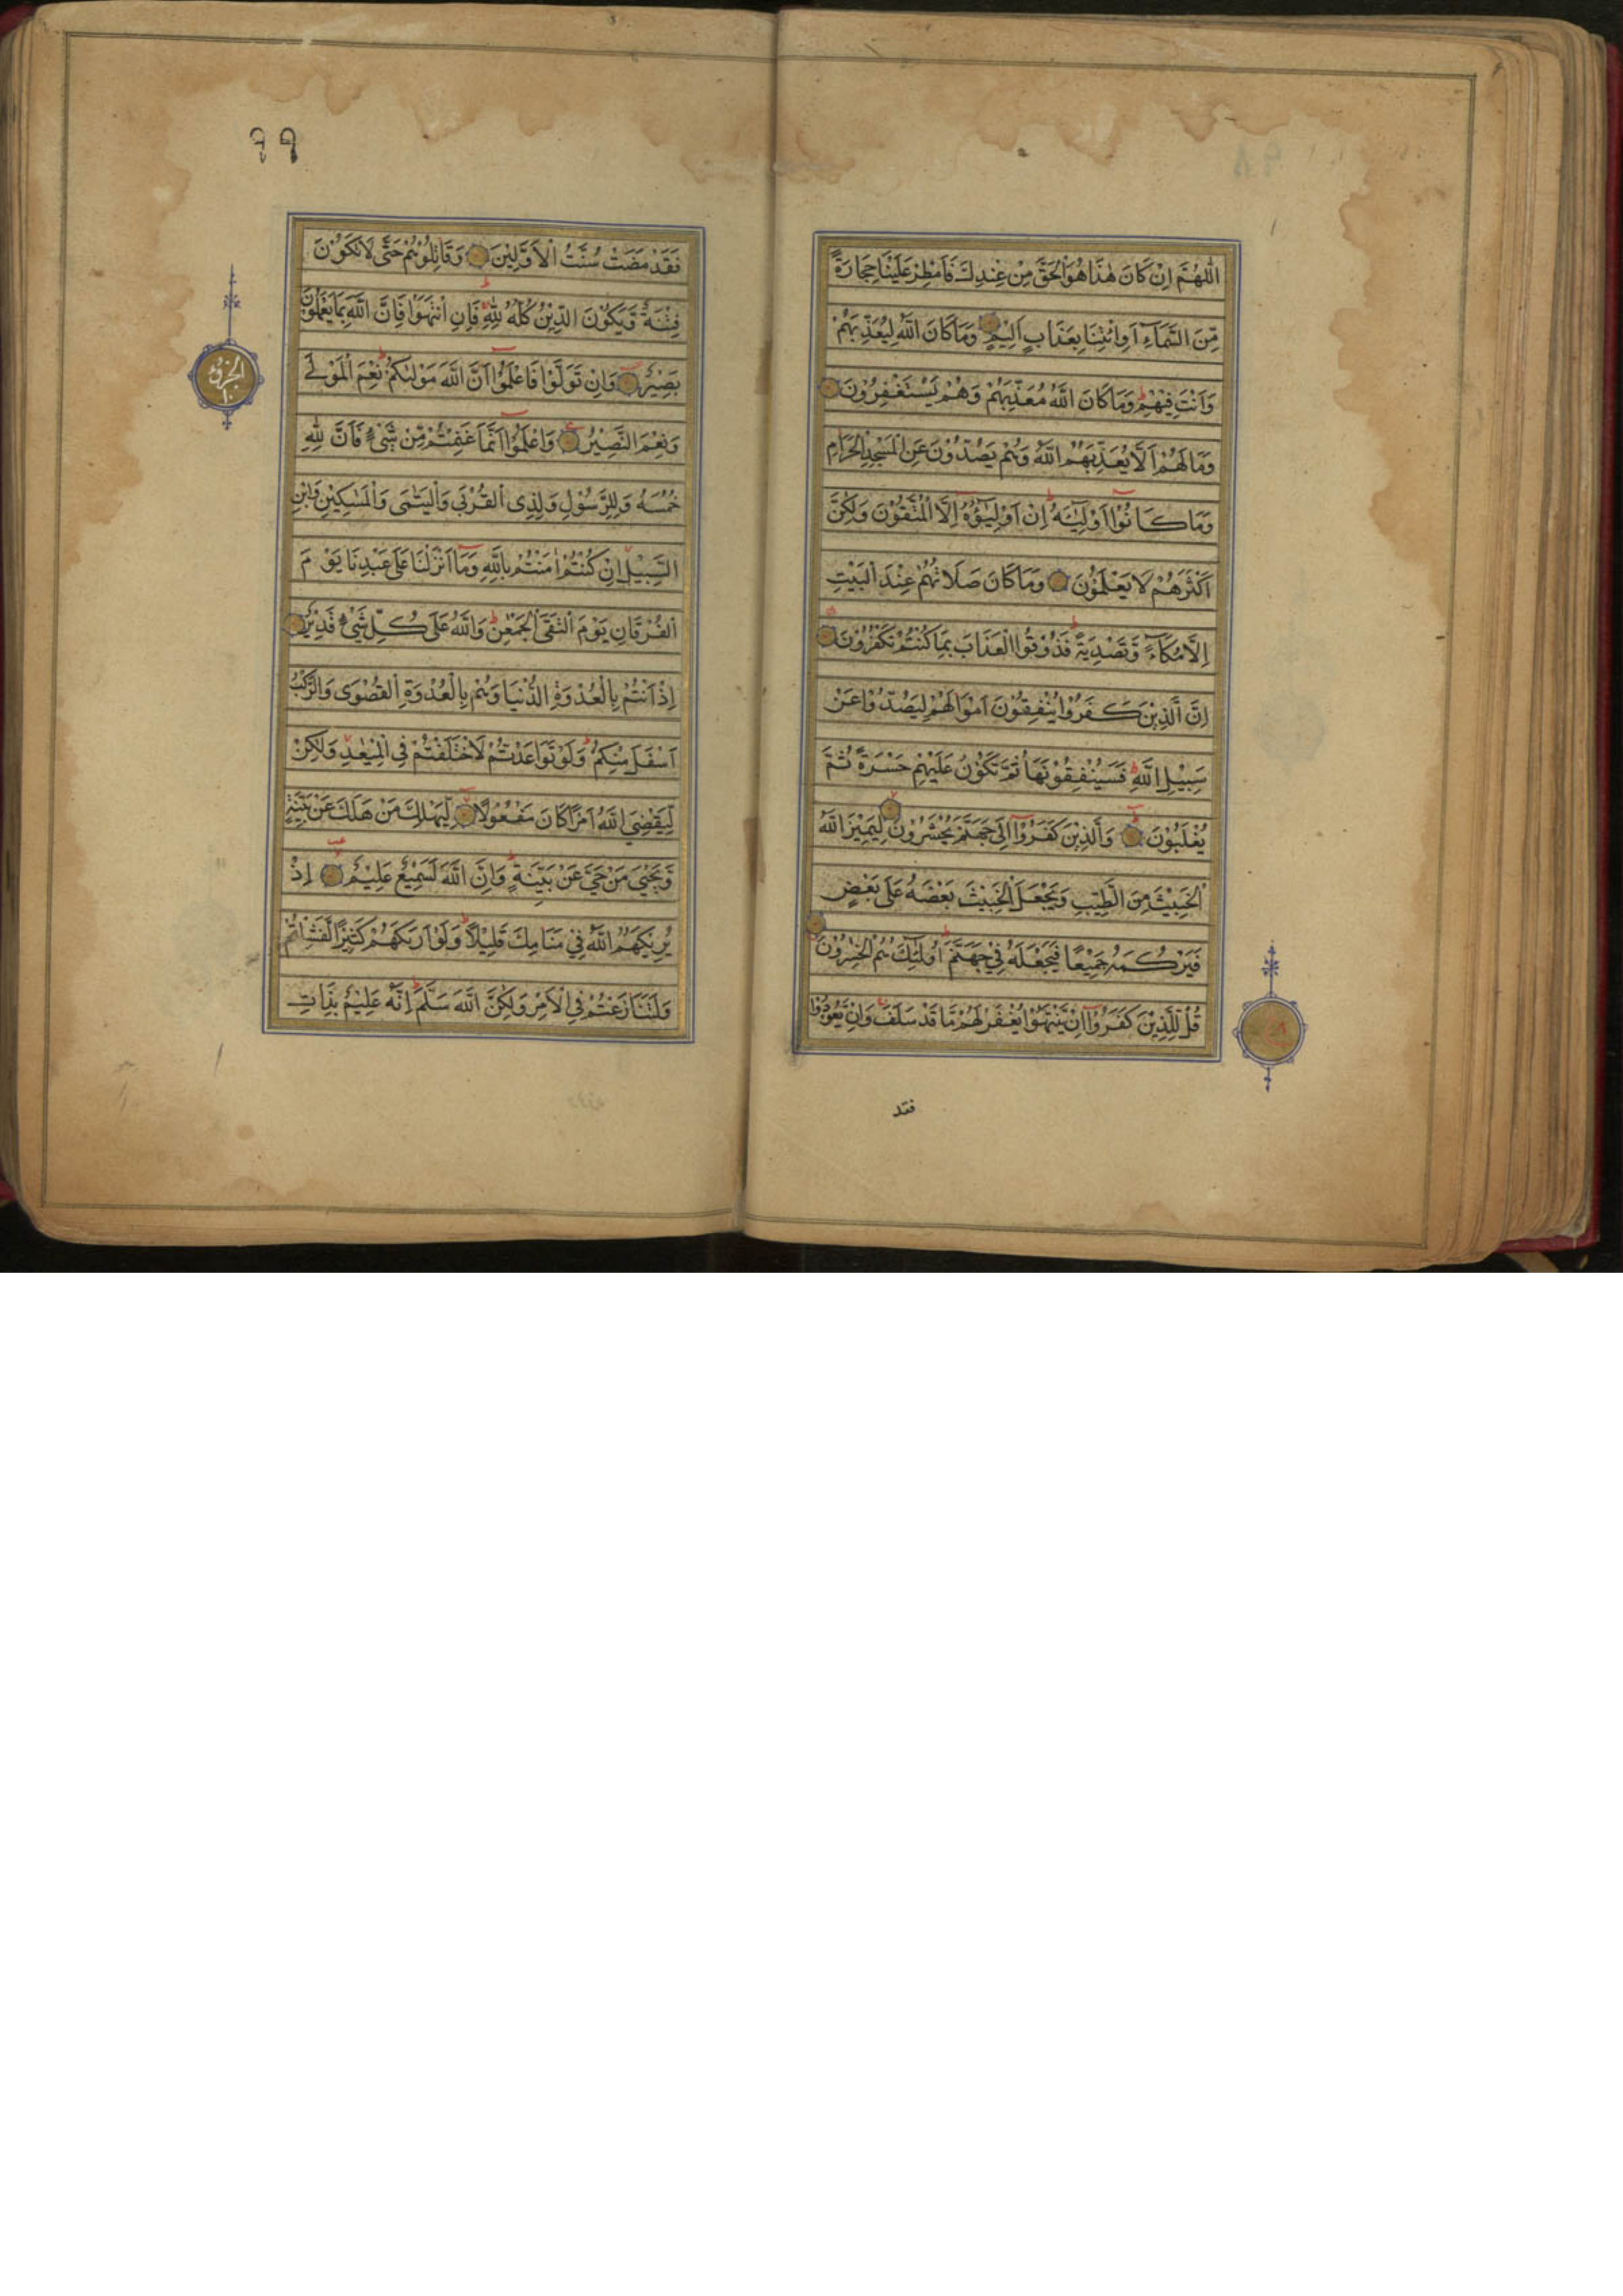 اَللّٰهُمَّ اِنْ كَانَ هٰذَا هُوَ الْحَقَّ مِنْ عِنْدِكَ فَاَمْطِرْ عَلَيْنَا حِجَارَةً
مِّنَ السَّمَآءِ اَوِ ائْتِنَا بِعَذَابٍ اَلِيْمٍ وَمَا كَانَ اللّٰهُ لِيُعَذِّبَهُمْ
وَاَنْتَ فِيْهِمْ ط وَمَا كَانَ اللّٰهُ مُعَذِّبَهُمْ وَهُمْ يَسْتَغْفِرُوْنَ
وَمَا لَهُمْ اَلَّا يُعَذِّبَهُمُ اللّٰهُ وَهُمْ يَصُدُّوْنَ عَنِ الْمَسْجِدِ الْحَرَامِ
وَمَا كَانُوْٓا اَوْلِيَآءَهٗ ط اِنْ اَوْلِيَآؤُهٗٓ اِلَّا الْمُتَّقُوْنَ وَلٰكِنَّ
اَكْثَرَهُمْ لَا يَعْلَمُوْنَ وَمَا كَانَ صَلَاتُهُمْ عِنْدَ الْبَيْتِ
اِلَّا مُكَآءً وَّتَصْدِيَةً ط فَذُوْقُوا الْعَذَابَ بِمَا كُنْتُمْ تَكْفُرُوْنَ
اِنَّ الَّذِيْنَ كَفَرُوْا يُنْفِقُوْنَ اَمْوَالَهُمْ لِيَصُدُّوْا عَنْ
سَبِيْلِ اللّٰهِ ط فَسَيُنْفِقُوْنَهَا ثُمَّ تَكُوْنُ عَلَيْهِمْ حَسْرَةً ثُمَّ
يُغْلَبُوْنَ وَالَّذِيْنَ كَفَرُوْٓا اِلٰى جَهَنَّمَ يُحْشَرُوْنَ لِيَمِيْزَ اللّٰهُ
الْخَبِيْثَ مِنَ الطَّيِّبِ وَيَجْعَلَ الْخَبِيْثَ بَعْضَهٗ عَلٰى بَعْضٍ
فَيَرْكُمَهٗ جَمِيْعًا فَيَجْعَلَهٗ فِيْ جَهَنَّمَ ط اُولٰٓئِكَ هُمُ الْخٰسِرُوْنَ
قُلْ لِّلَّذِيْنَ كَفَرُوْٓا اِنْ يَّنْتَهُوْا يُغْفَرْ لَهُمْ مَّا قَدْ سَلَفَ وَاِنْ يَّعُوْدُوْا
فقد
٩٩
فَقَدْ مَضَتْ سُنَّتُ الْاَوَّلِيْنَ وَقَاتِلُوْهُمْ حَتّٰى لَا تَكُوْنَ
فِتْنَةٌ وَّيَكُوْنَ الدِّيْنُ كُلُّهٗ لِلّٰهِ ط فَاِنِ انْتَهَوْا فَاِنَّ اللّٰهَ بِمَا يَعْمَلُوْنَ
بَصِيْرٌ وَاِنْ تَوَلَّوْا فَاعْلَمُوْٓا اَنَّ اللّٰهَ مَوْلٰىكُمْ ط نِعْمَ الْمَوْلٰى
وَنِعْمَ النَّصِيْرُ وَاعْلَمُوْٓا اَنَّمَا غَنِمْتُمْ مِّنْ شَيْءٍ فَاَنَّ لِلّٰهِ
خُمُسَهٗ وَلِلرَّسُوْلِ وَلِذِي الْقُرْبٰى وَالْيَتٰمٰى وَالْمَسٰكِيْنِ وَابْنِ
السَّبِيْلِ اِنْ كُنْتُمْ اٰمَنْتُمْ بِاللّٰهِ وَمَآ اَنْزَلْنَا عَلٰى عَبْدِنَا يَوْمَ
الْفُرْقَانِ يَوْمَ الْتَقَى الْجَمْعٰنِ ط وَاللّٰهُ عَلٰى كُلِّ شَيْءٍ قَدِيْرٌ
اِذْ اَنْتُمْ بِالْعُدْوَةِ الدُّنْيَا وَهُمْ بِالْعُدْوَةِ الْقُصْوٰى وَالرَّكْبُ
اَسْفَلَ مِنْكُمْ ط وَلَوْ تَوَاعَدْتُّمْ لَاخْتَلَفْتُمْ فِي الْمِيْعٰدِ وَلٰكِنْ
لِّيَقْضِيَ اللّٰهُ اَمْرًا كَانَ مَفْعُوْلًا لِّيَهْلِكَ مَنْ هَلَكَ عَنْ بَيِّنَةٍ
وَّيَحْيٰى مَنْ حَيَّ عَنْ بَيِّنَةٍ ط وَاِنَّ اللّٰهَ لَسَمِيْعٌ عَلِيْمٌ اِذْ
يُرِيْكَهُمُ اللّٰهُ فِيْ مَنَامِكَ قَلِيْلًا ط وَلَوْ اَرٰىكَهُمْ كَثِيْرًا لَّفَشِلْتُمْ
وَلَتَنَازَعْتُمْ فِي الْاَمْرِ وَلٰكِنَّ اللّٰهَ سَلَّمَ ط اِنَّهٗ عَلِيْمٌ بِذَاتِ
الجزؤ
١٠